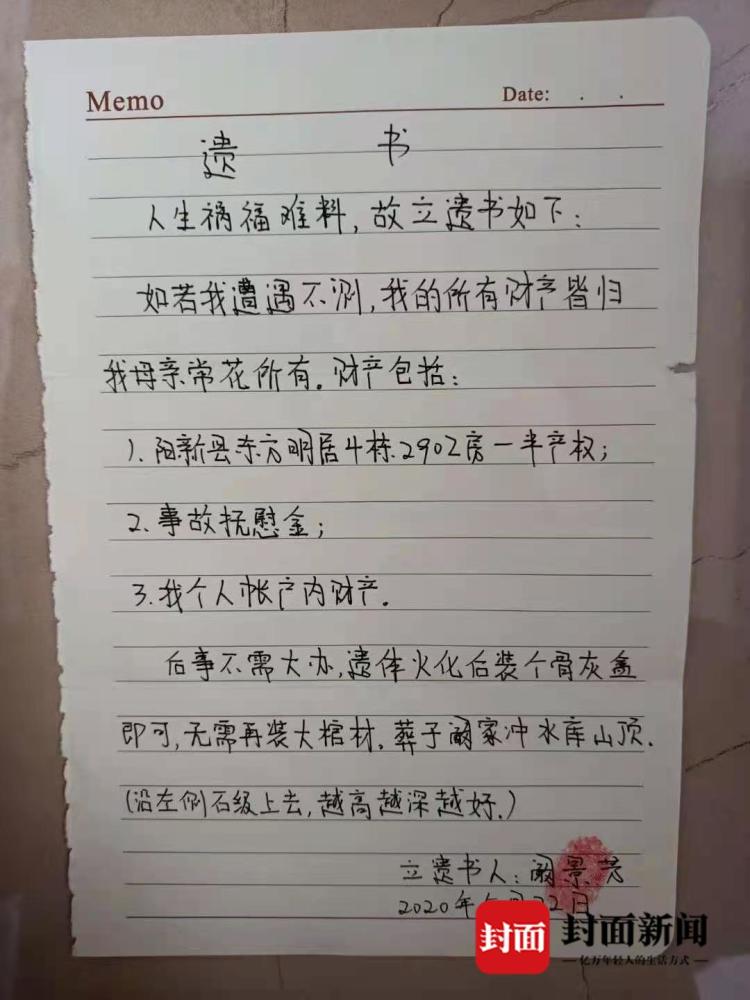 Memo Date: . .
遗 书
人生祸福难料，故立遗书如下：
如若我遭遇不测，我的所有财产皆归
我母亲常花所有。财产包括：
1.阳新县东方明居4栋2902房一半产权；
2.事故抚慰金；
3.我个人帐户内财产。
后事不需大办，遗体火化后装个骨灰盒
即可，无需再装大棺材。葬于阚家冲水库山顶。
（沿左侧石级上去，越高越深越好。）
立遗书人：阚景芳
2020年 月22日
封面 封面新闻
亿万年轻人的生活方式